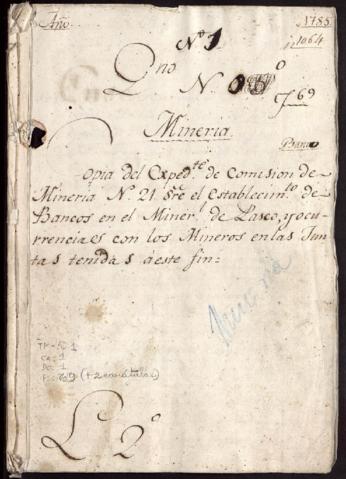 Año
1785
Nº 1
1064
Qno
N.
f 69
Mineria
Banco
Copia del Expedte de Comision de
Mineria Nº 21 sre el Establecimto de
Bancos en el Miner.l de Pasco, y ocu-
rrencias con los Mineros en las Jun-
tas tenidas a este fin:
Mineria
CA: 1
DO: 1
L. 2º